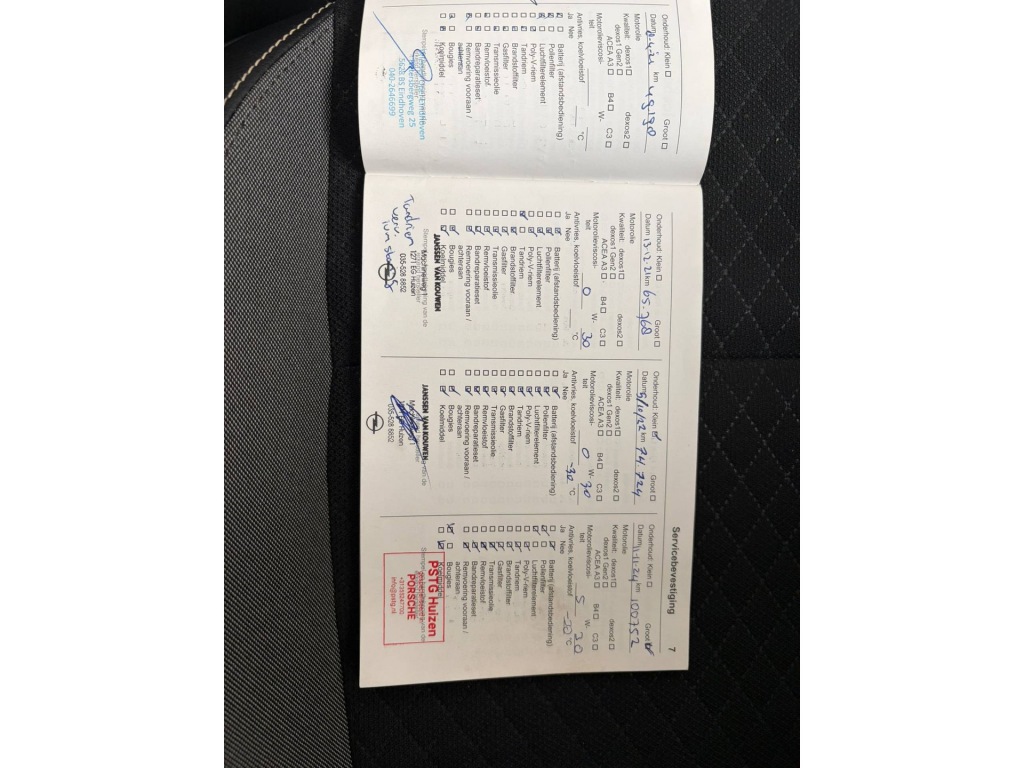 Onderhoud: Klein Groot
Datum km 48.190
Motorolie
Kwaliteit: dexos1 dexos2
dexos1 Gen2
ACEA A3 B4 C3
Motorolieviscosi- W-
teit
Antivries, koelvloeistof °C
Ja Nee
Batterij (afstandsbediening)
Pollenfilter
Luchtfilterelement
Poly-V-riem
Tandriem
Brandstoffilter
Gasfilter
Transmissieolie
Remvloeistof
Bandreparatieset
Remvoering vooraan /
achteraan
Bougies
Koelmiddel
5628 BS Eindhoven
040-2646699
Onderhoud: Klein Groot
Datum 13-12-21 km 65.768
Motorolie
Kwaliteit: dexos1 dexos2
dexos1 Gen2
ACEA A3 B4 C3
Motorolieviscosi- 0 W- 30
teit
Antivries, koelvloeistof °C
Ja Nee
Batterij (afstandsbediening)
Pollenfilter
Luchtfilterelement
Poly-V-riem
Tandriem
Brandstoffilter
Gasfilter
Transmissieolie
Remvloeistof
Bandreparatieset
Remvoering vooraan /
achteraan
Bougies
Koelmiddel
JANSSEN VAN KOUWEN
1271 EG Huizen
035-528 8852
Tandriem
verv.
Onderhoud: Klein Groot
Datum km 74 724
Motorolie
Kwaliteit: dexos1 dexos2
dexos1 Gen2
ACEA A3 B4 C3
Motorolieviscosi- 0 W- 30
teit
Antivries, koelvloeistof -30 °C
Ja Nee
Batterij (afstandsbediening)
Pollenfilter
Luchtfilterelement
Poly-V-riem
Tandriem
Brandstoffilter
Gasfilter
Transmissieolie
Remvloeistof
Bandreparatieset
Remvoering vooraan /
achteraan
Bougies
Koelmiddel
JANSSEN VAN KOUWEN
035-528 8852
Servicebevestiging 7
Onderhoud: Klein Groot
Datum 11-11-24 km 100752
Motorolie
Kwaliteit: dexos1 dexos2
dexos1 Gen2
ACEA A3 B4 C3
Motorolieviscosi- 5 W- 30
teit
Antivries, koelvloeistof °C
Ja Nee
Batterij (afstandsbediening)
Pollenfilter
Luchtfilterelement
Poly-V-riem
Tandriem
Brandstoffilter
Gasfilter
Transmissieolie
Remvloeistof
Bandreparatieset
Remvoering vooraan /
achteraan
Bougies
Koelmiddel
PSTG Huizen
PORSCHE
+31355247700
info@pstg.nl